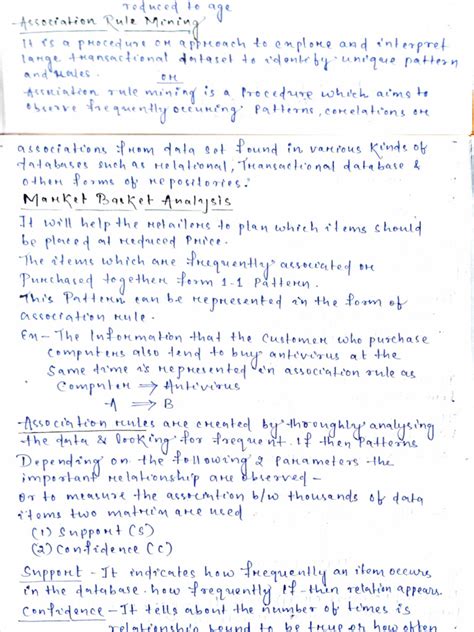 reduced to age
- Association Rule Mining
It is a procedure or approach to explore and interpret
large transactional dataset to identify unique pattern
and rules. OR
Association rule mining is a Procedure which aims to
observe frequently occuring Patterns, correlations or
associations from data set found in various kinds of
databases such as relational, Transactional database &
other forms of repositories.
Market Basket Analysis
It will help the retailers to plan which items should
be placed at reduced Price.
The items which are frequently associated or
Purchased together form 1-1 Pattern.
This Pattern can be represented in the form of
association rule.
Ex- The Information that the Customer who purchase
Computers also tend to buy antivirus at the
Same time is represented in association rule as
Computer ⟹ Antivirus
A ⟹ B
- Association rules are created by thoroughly analysing
the data & looking for frequent if then Patterns
Depending on the following 2 Parameters the
important relationship are observed -
or to measure the association b/w thousands of data
items two matrix are used
(1) Support (S)
(2) Confidence (C)
Support - It indicates how frequently an item occurs
in the database. how frequently if-then relation appears.
Confidence - It tells about the number of times is
relationship found to be true or how often